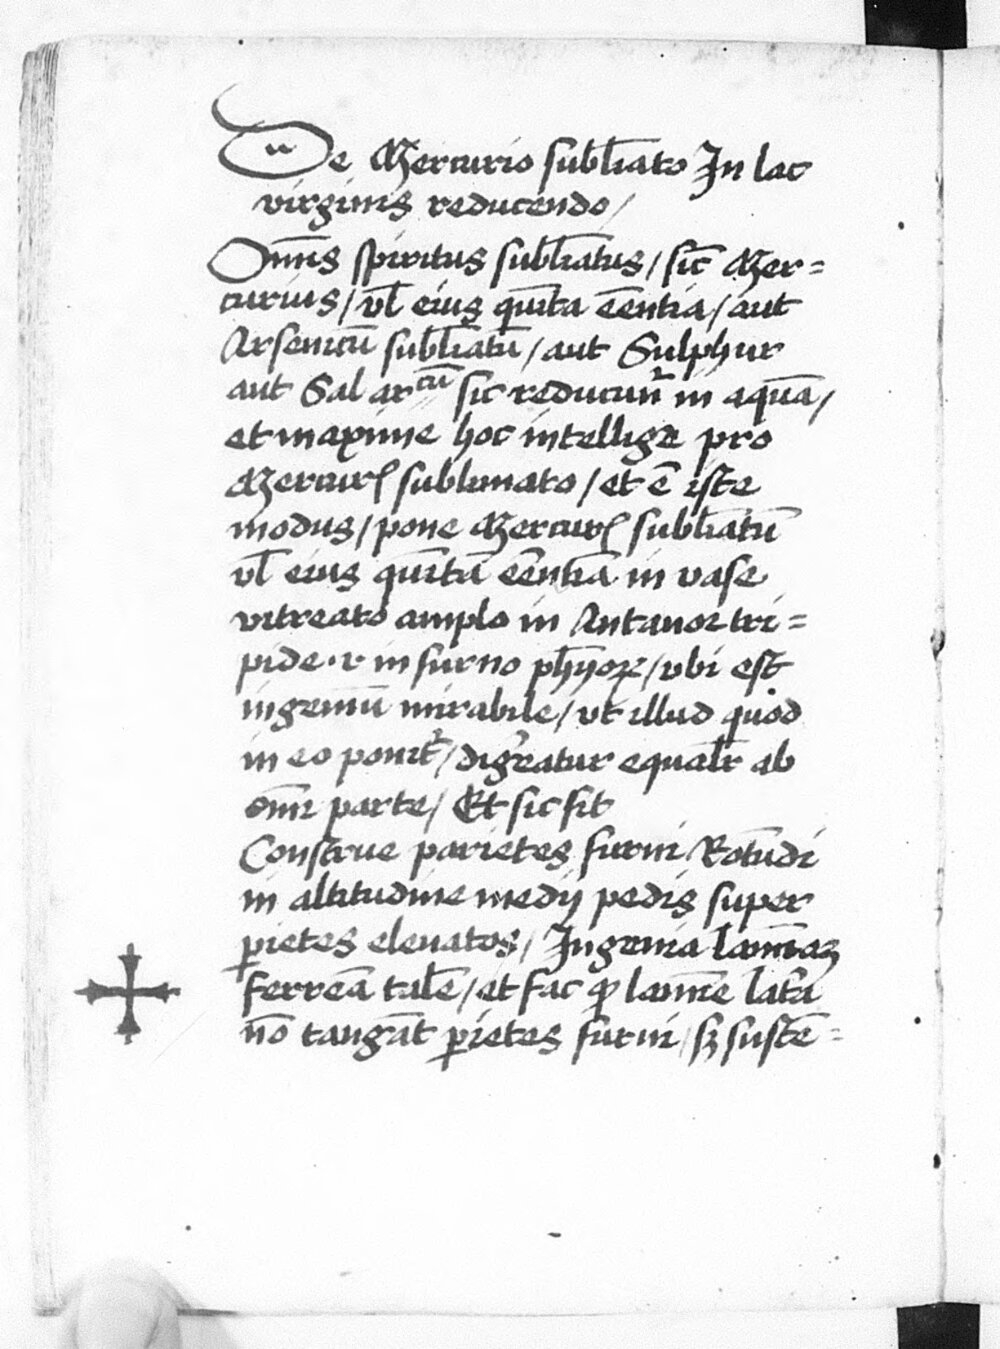 De Mercurio subl̄iato In lac
virginis reducendo /
Om̄is spiritus subl̄iatus / sic̄ Mer=
curius / vl̄ eius quīta ēentia / aut
Arsenicū subl̄iatū / aut Sulphur
aut Sal arcū sic reducun̄ in aquā /
et maxime hoc intellige pro
Mercur̄ sublimato / et ē iste
modus / pone Mercur̄ subl̄iatū
vl̄ eius quītā ēentiā in vase
vitreato amplo in Antanor tri=
pide · v in furno ph̄yoꝝ / vbi est
ingeniū mirabile / vt illud quod
in eo ponit̄ / digeratur equalr̄ ab
om̄i parte / Et sic fit
Construe parietes furni Rotūdi
in altitudine medij pedis super
ꝑietes eleuatos / Ingenia lam̄iaʒ
ferreā talē / et fac ꝙ lam̄ie latā
nō tangāt ꝑietes furni / sʒ sustē=